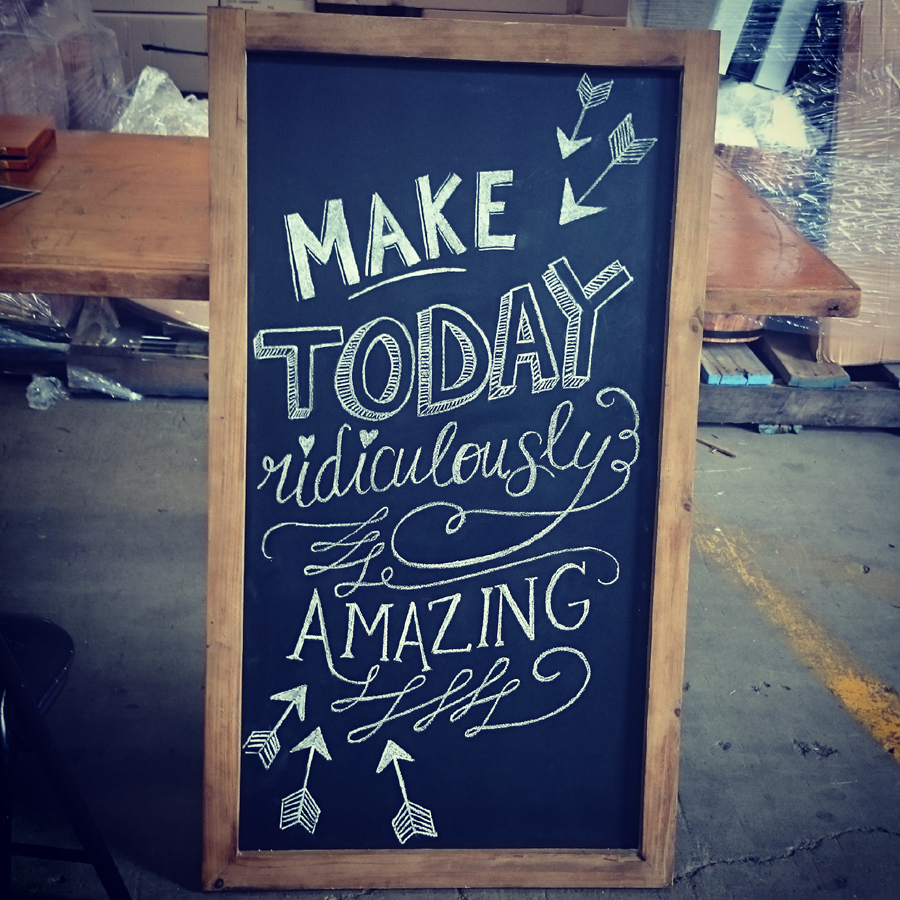 MAKE
TODAY
ridiculously
AMAZING